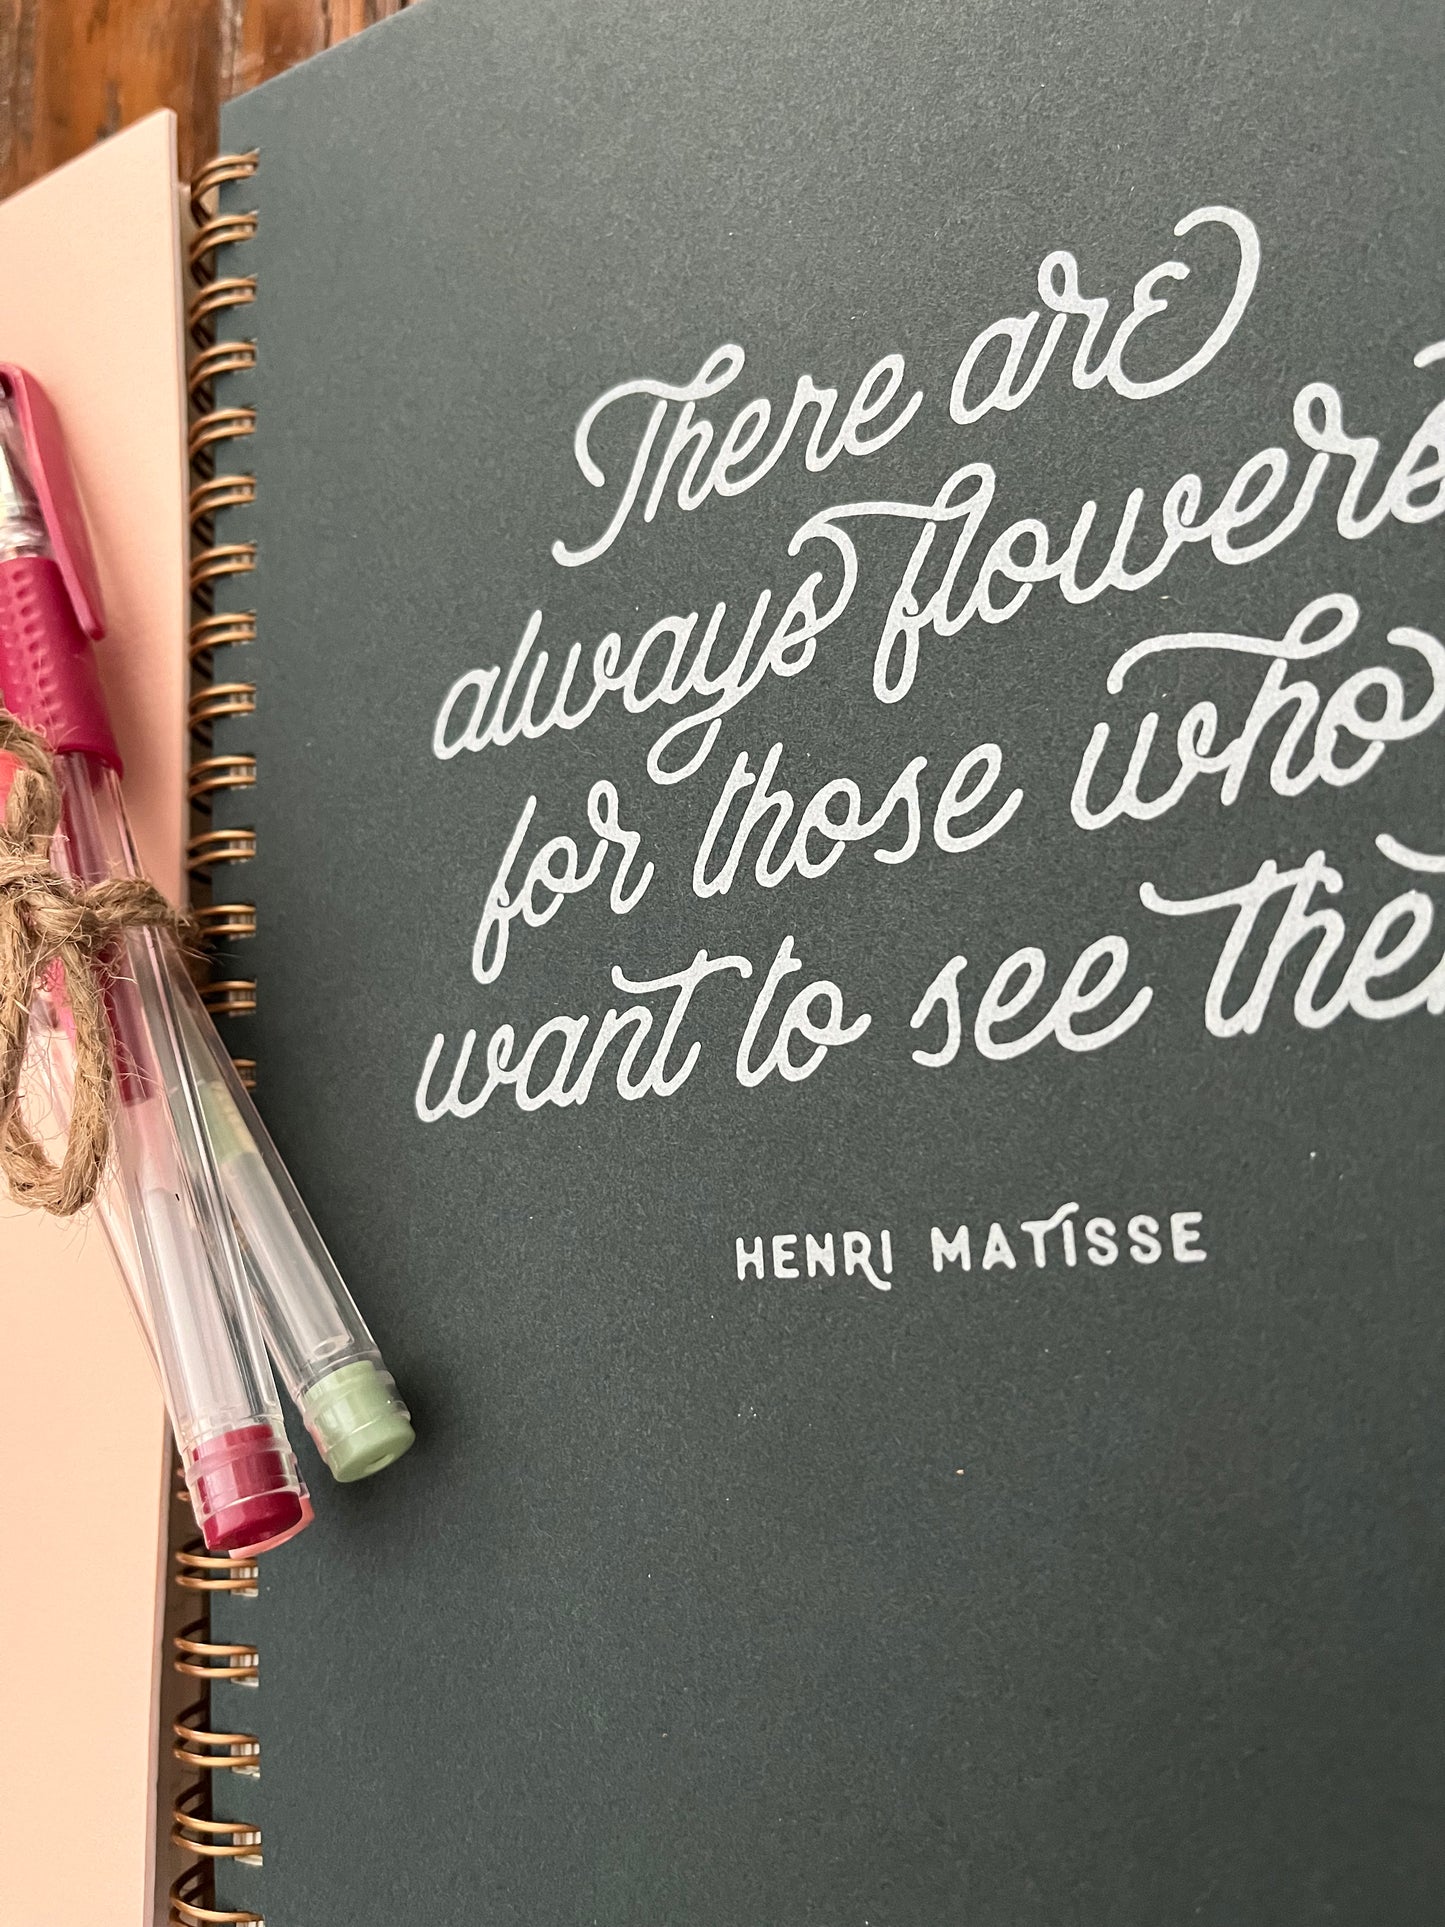 There are
always flowers
for those who
want to see them
HENRI MATISSE